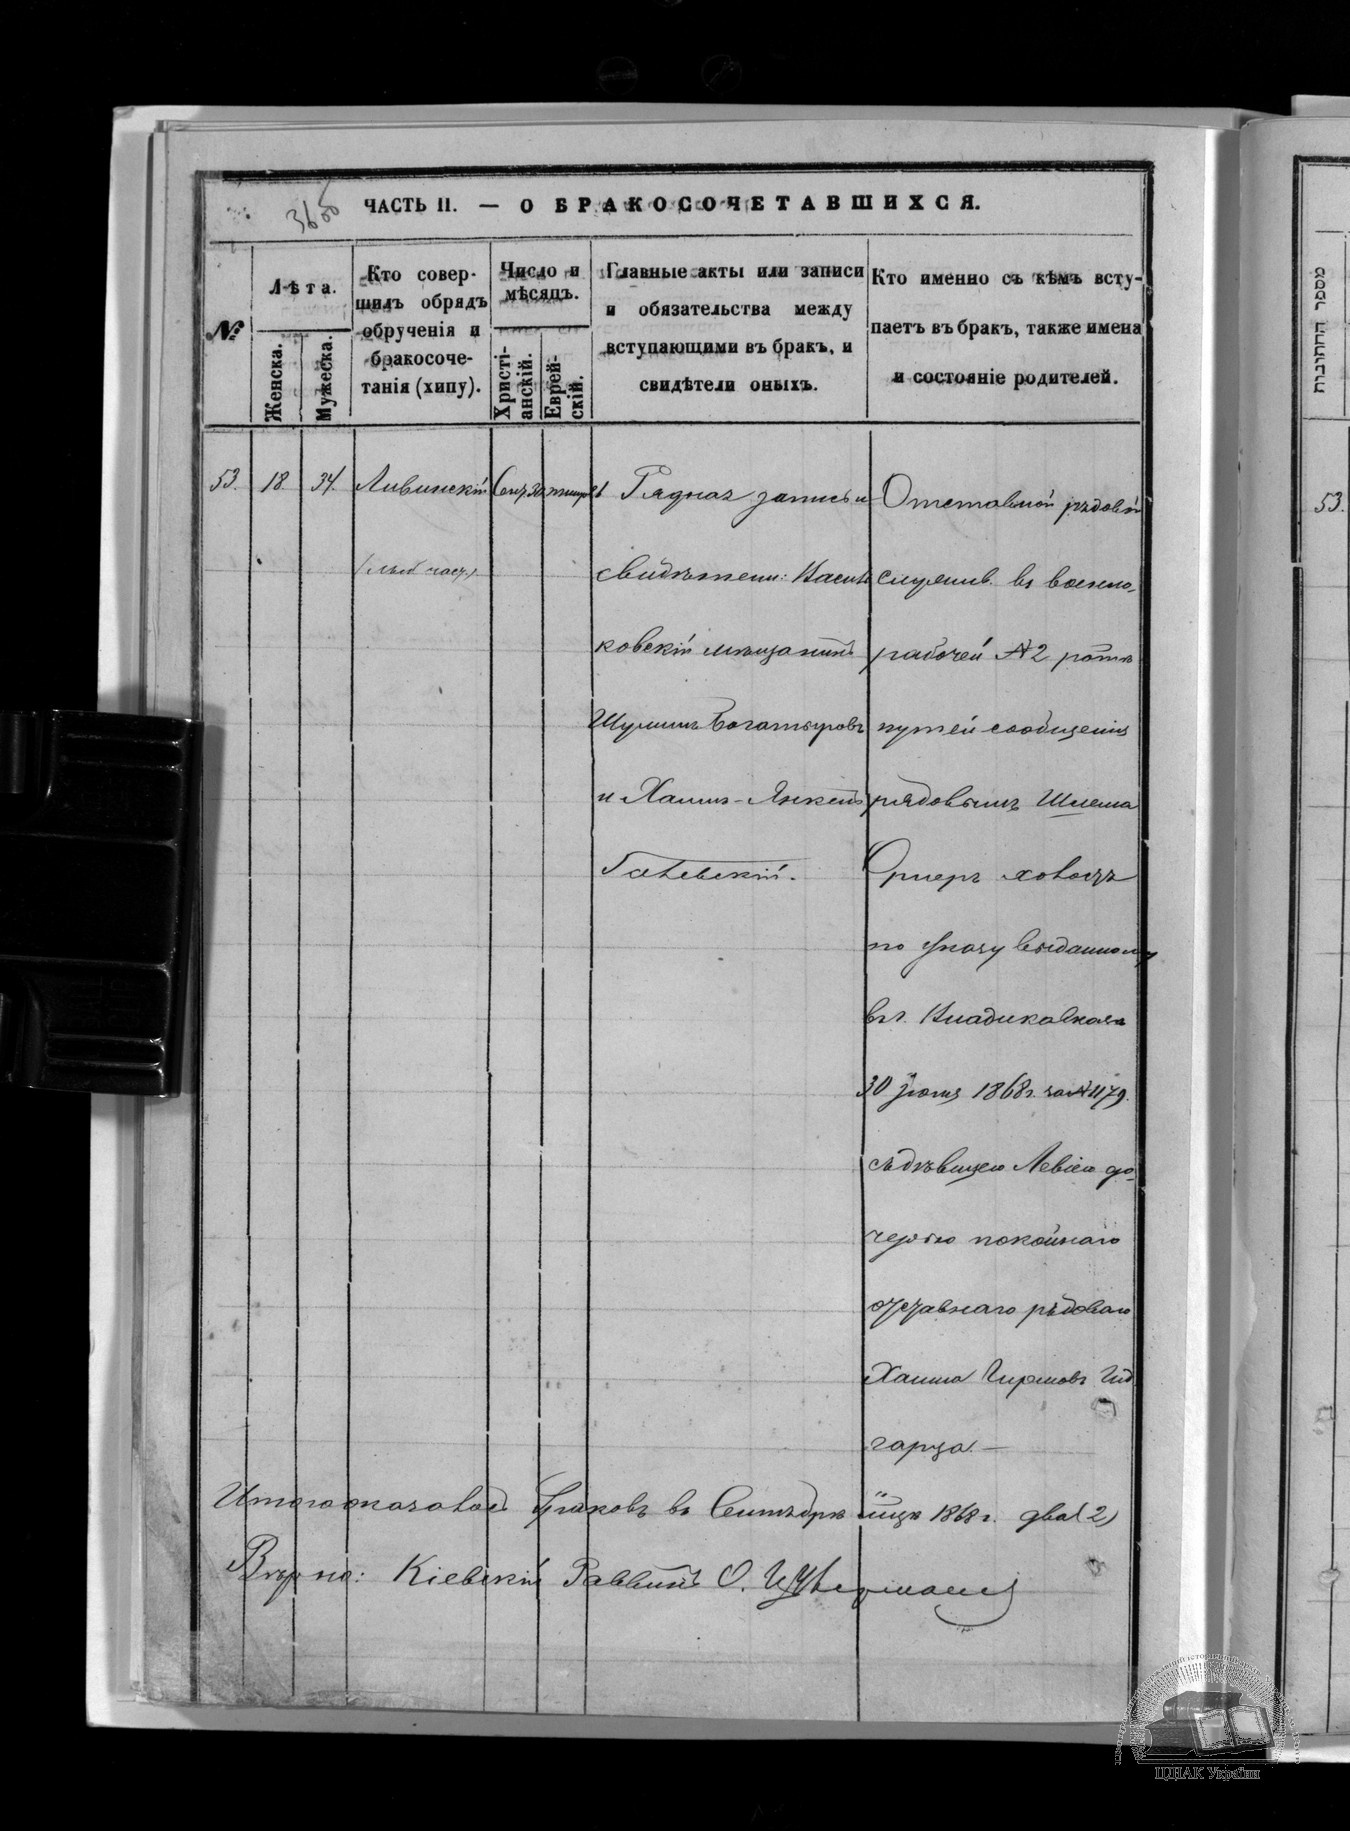 ЧАСТЬ II. — О БРАКОСОЧЕТАВШИХСЯ.
№
Лѣта.
Женска.
Мужеска.
Кто совер-
шилъ обрядъ
обрученія и
бракосоче-
танія (хипу).
Число и
мѣсяцъ.
Христі-
анскій.
Еврей-
скій.
Главные акты или записи
и обязательства между
вступающими въ бракъ, и
свидѣтели оныхъ.
Кто именно съ кѣмъ всту-
паетъ въ бракъ, также имена
и состояніе родителей.
53.
18
34.
Ливинскій
Рядная запись и
свидѣтели: Василь
ковскій мѣщанинъ
Шулимъ Богатыровъ
и Хаимъ-Янкель
Отставной рядовой
служив. въ военно-
рабочей №2 ротѣ
путей сообщенія
рядовымъ Шлема
по указу выданному
въ г. Владикавказѣ
30 Іюля 1868 г. за №1179.
съ дѣвицею до-
черью покойнаго
отставнаго рядоваго
Хаима
Итого оказалось браковъ въ Сентябрѣ мцѣ 1868 г. два (2)
Вѣрно: Кіевскій Раввинъ
מספר החתונות
53.
ЦДІАК України